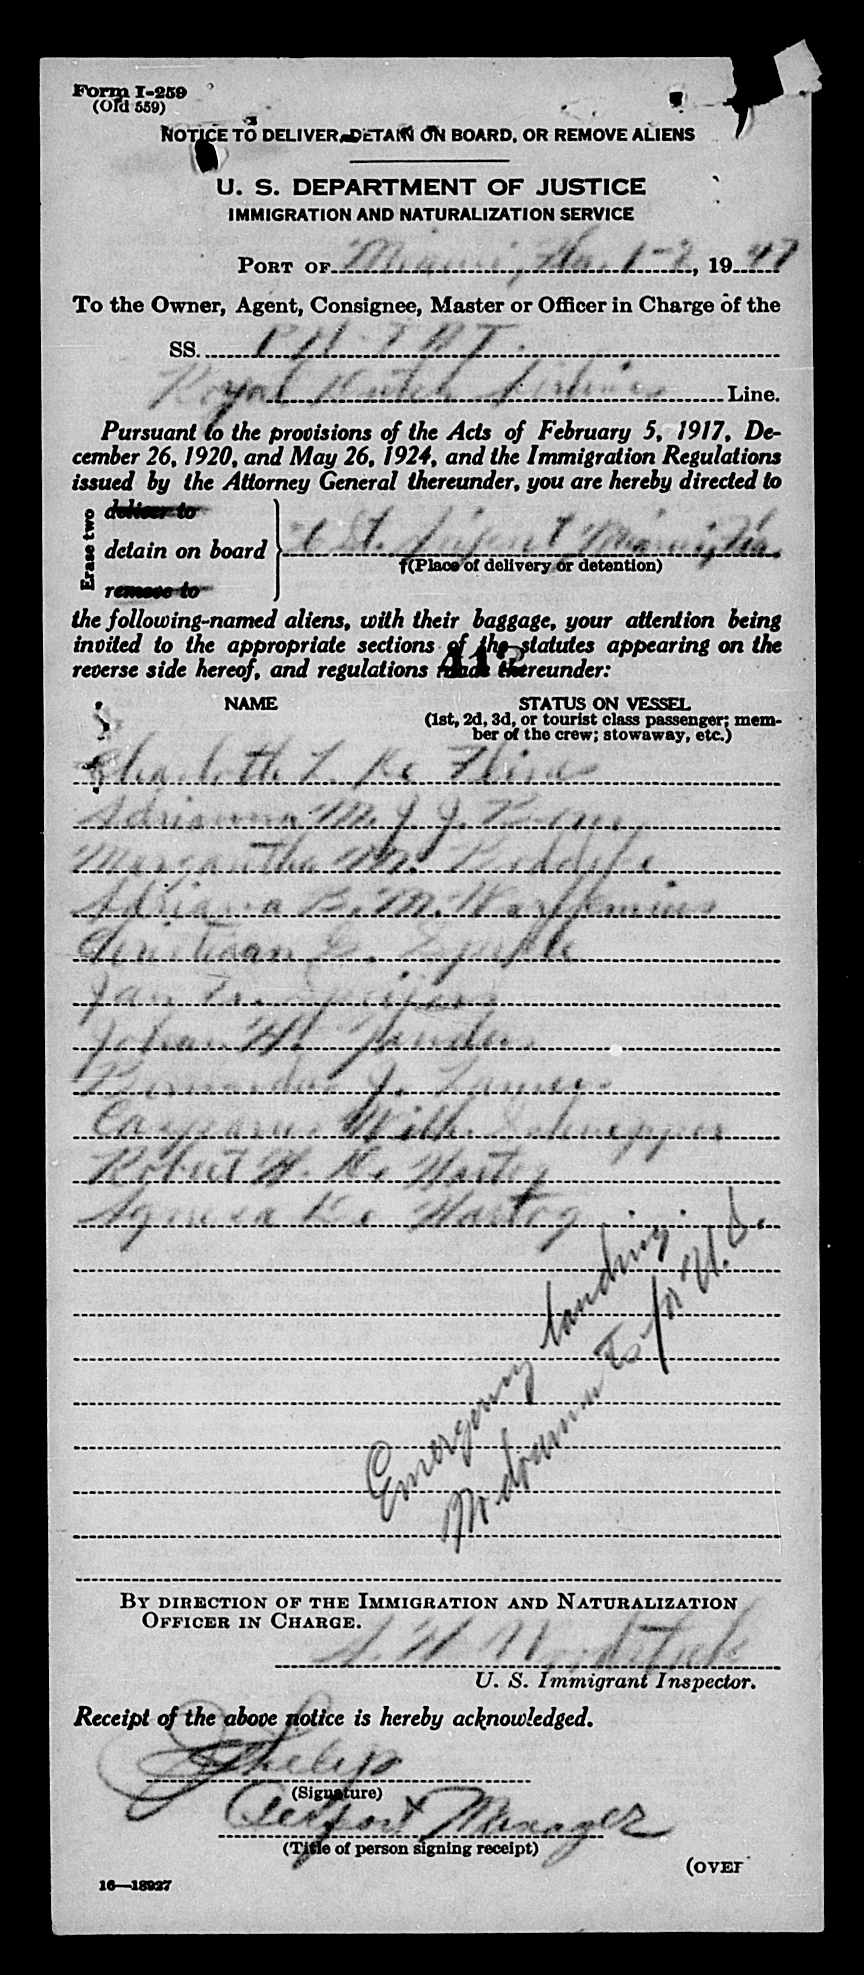 Form I-259
(Old 559)
NOTICE TO DELIVER, DETAIN ON BOARD, OR REMOVE ALIENS
U. S. DEPARTMENT OF JUSTICE
IMMIGRATION AND NATURALIZATION SERVICE
PORT OF Miami, Fla. 1-2, 1947
To the Owner, Agent, Consignee, Master or Officer in Charge of the
SS. PH-TBT.
Royal Dutch Airlines Line.
Pursuant to the provisions of the Acts of February 5, 1917, De-
cember 26, 1920, and May 26, 1924, and the Immigration Regulations
issued by the Attorney General thereunder, you are hereby directed to
Erase two
deliver to
detain on board St. Airport Miami, Fla.
remove to
(Place of delivery or detention)
the following-named aliens, with their baggage, your attention being
invited to the appropriate sections of the statutes appearing on the
reverse side hereof, and regulations made thereunder:
NAME STATUS ON VESSEL
(1st, 2d, 3d, or tourist class passenger; mem-
ber of the crew; stowaway, etc.)
Charlotte L. De
Adrianna M. J. J.
Margantha M.
Adriana B. M. Warffemius
Christiaan G.
Jan
Johan W.
Bernardus J.
Casparus Wilh. Schnepper
Robert H. De Hartog
De Hartog
Emergency landing.
No documents for U.S.
BY DIRECTION OF THE IMMIGRATION AND NATURALIZATION
OFFICER IN CHARGE.
U. S. Immigrant Inspector.
Receipt of the above notice is hereby acknowledged.
(Signature)
Airport Manager
(Title of person signing receipt)
(OVER
16—18927